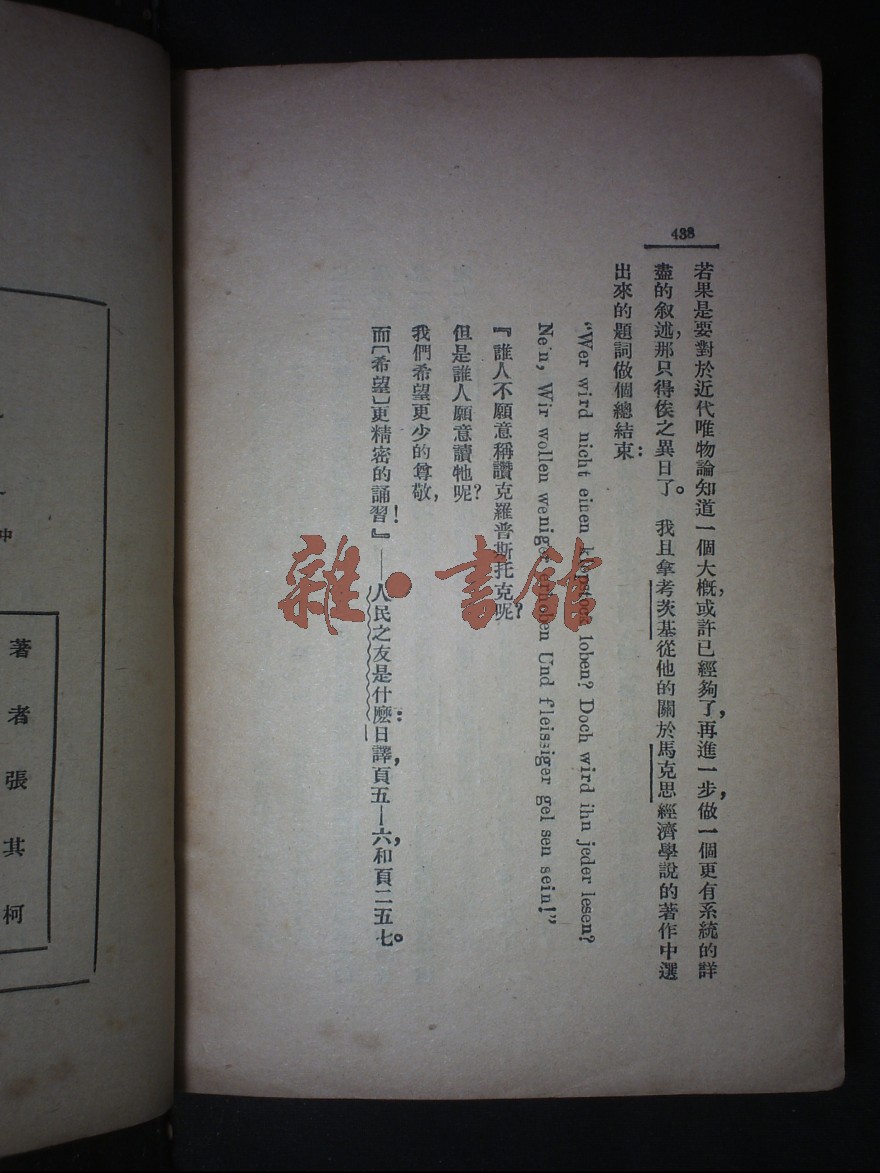 438
若果是要對於近代唯物論知道一個大概，或許已經夠了，再進一步，做一個更有系統的詳
盡的叙述，那只得俟之異日了。我且拿考茨基從他的關於馬克思經濟學說的著作中選
出來的題詞做個總結束：
"Wer wird nicht einen klopstock loben? Doch wird ihn jeder lesen?
Ne'n, Wir wollen weniger erhoben Und fleissiger gel sen sein!"
『誰人不願意稱讚克羅普斯托克呢？
但是誰人願意讀牠呢？
我們希望更少的尊敬，
而〔希望〕更精密的誦習！』——人民之友是什麽：日譯，頁五—六，和頁二五七。
著者張其柯
中
雜·書館